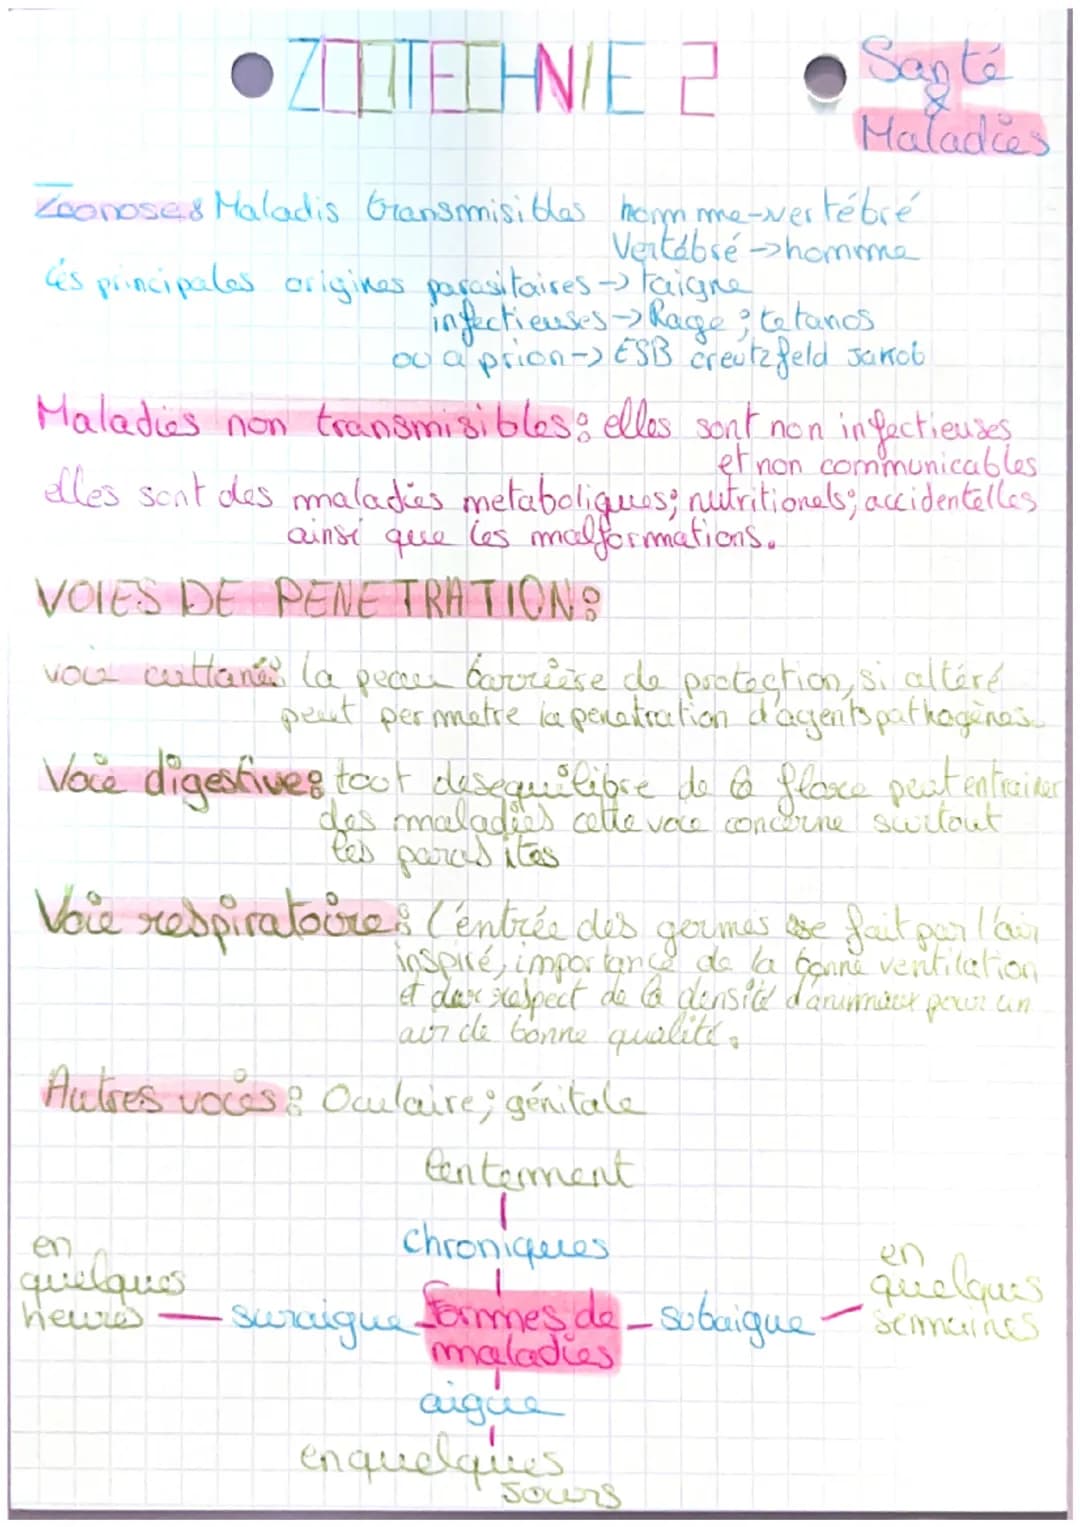 ZOOTECHNIE 2
Santé
&
Maladies
Zoonoses : Maladis transmisibles homme-vertébré
Vertébré -> homme
Les principales origines parasitaires -> Taigne
infectieuses -> Rage ; tetanos
ou a prion -> ESB creutzfeld Jakob
Maladies non transmisibles : elles sont non infectieuses
et non communicables
elles sont des maladies metaboliques ; nutritionels ; accidentelles
ainsi que les malformations.
VOIES DE PENETRATION :
voie cuttanée la peau barrière de protection, si altéré
peut permetre la penetration d'agents pathogènes
Voie digestive : tout desequilibre de la flore peut entrainer
des maladies cette voie concerne surtout
les parasites
Voie respiratoire : l'entrée des germes se fait par l'air
inspiré, importance de la bonne ventilation
et du respect de la densité d'animaux pour un
air de bonne qualité.
Autres voies : Oculaire ; génitale
lentement
chroniques
en
quelques
heures
suraigue
Formes de
maladies
subaigue
en
quelques
semaines
aigue
en quelques
jours